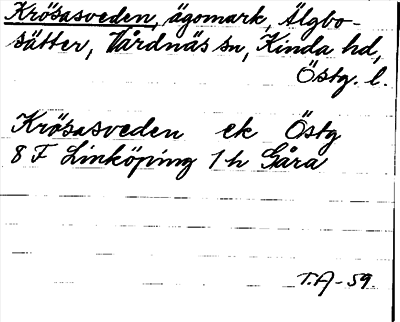 Krösasveden, ägomark, Älgbo-
sätter, Vårdnäs sn, Kinda hd,
Östg. l.
Krösasveden ek Östg
8 F Linköping 1 h Gåra
T.A-59.